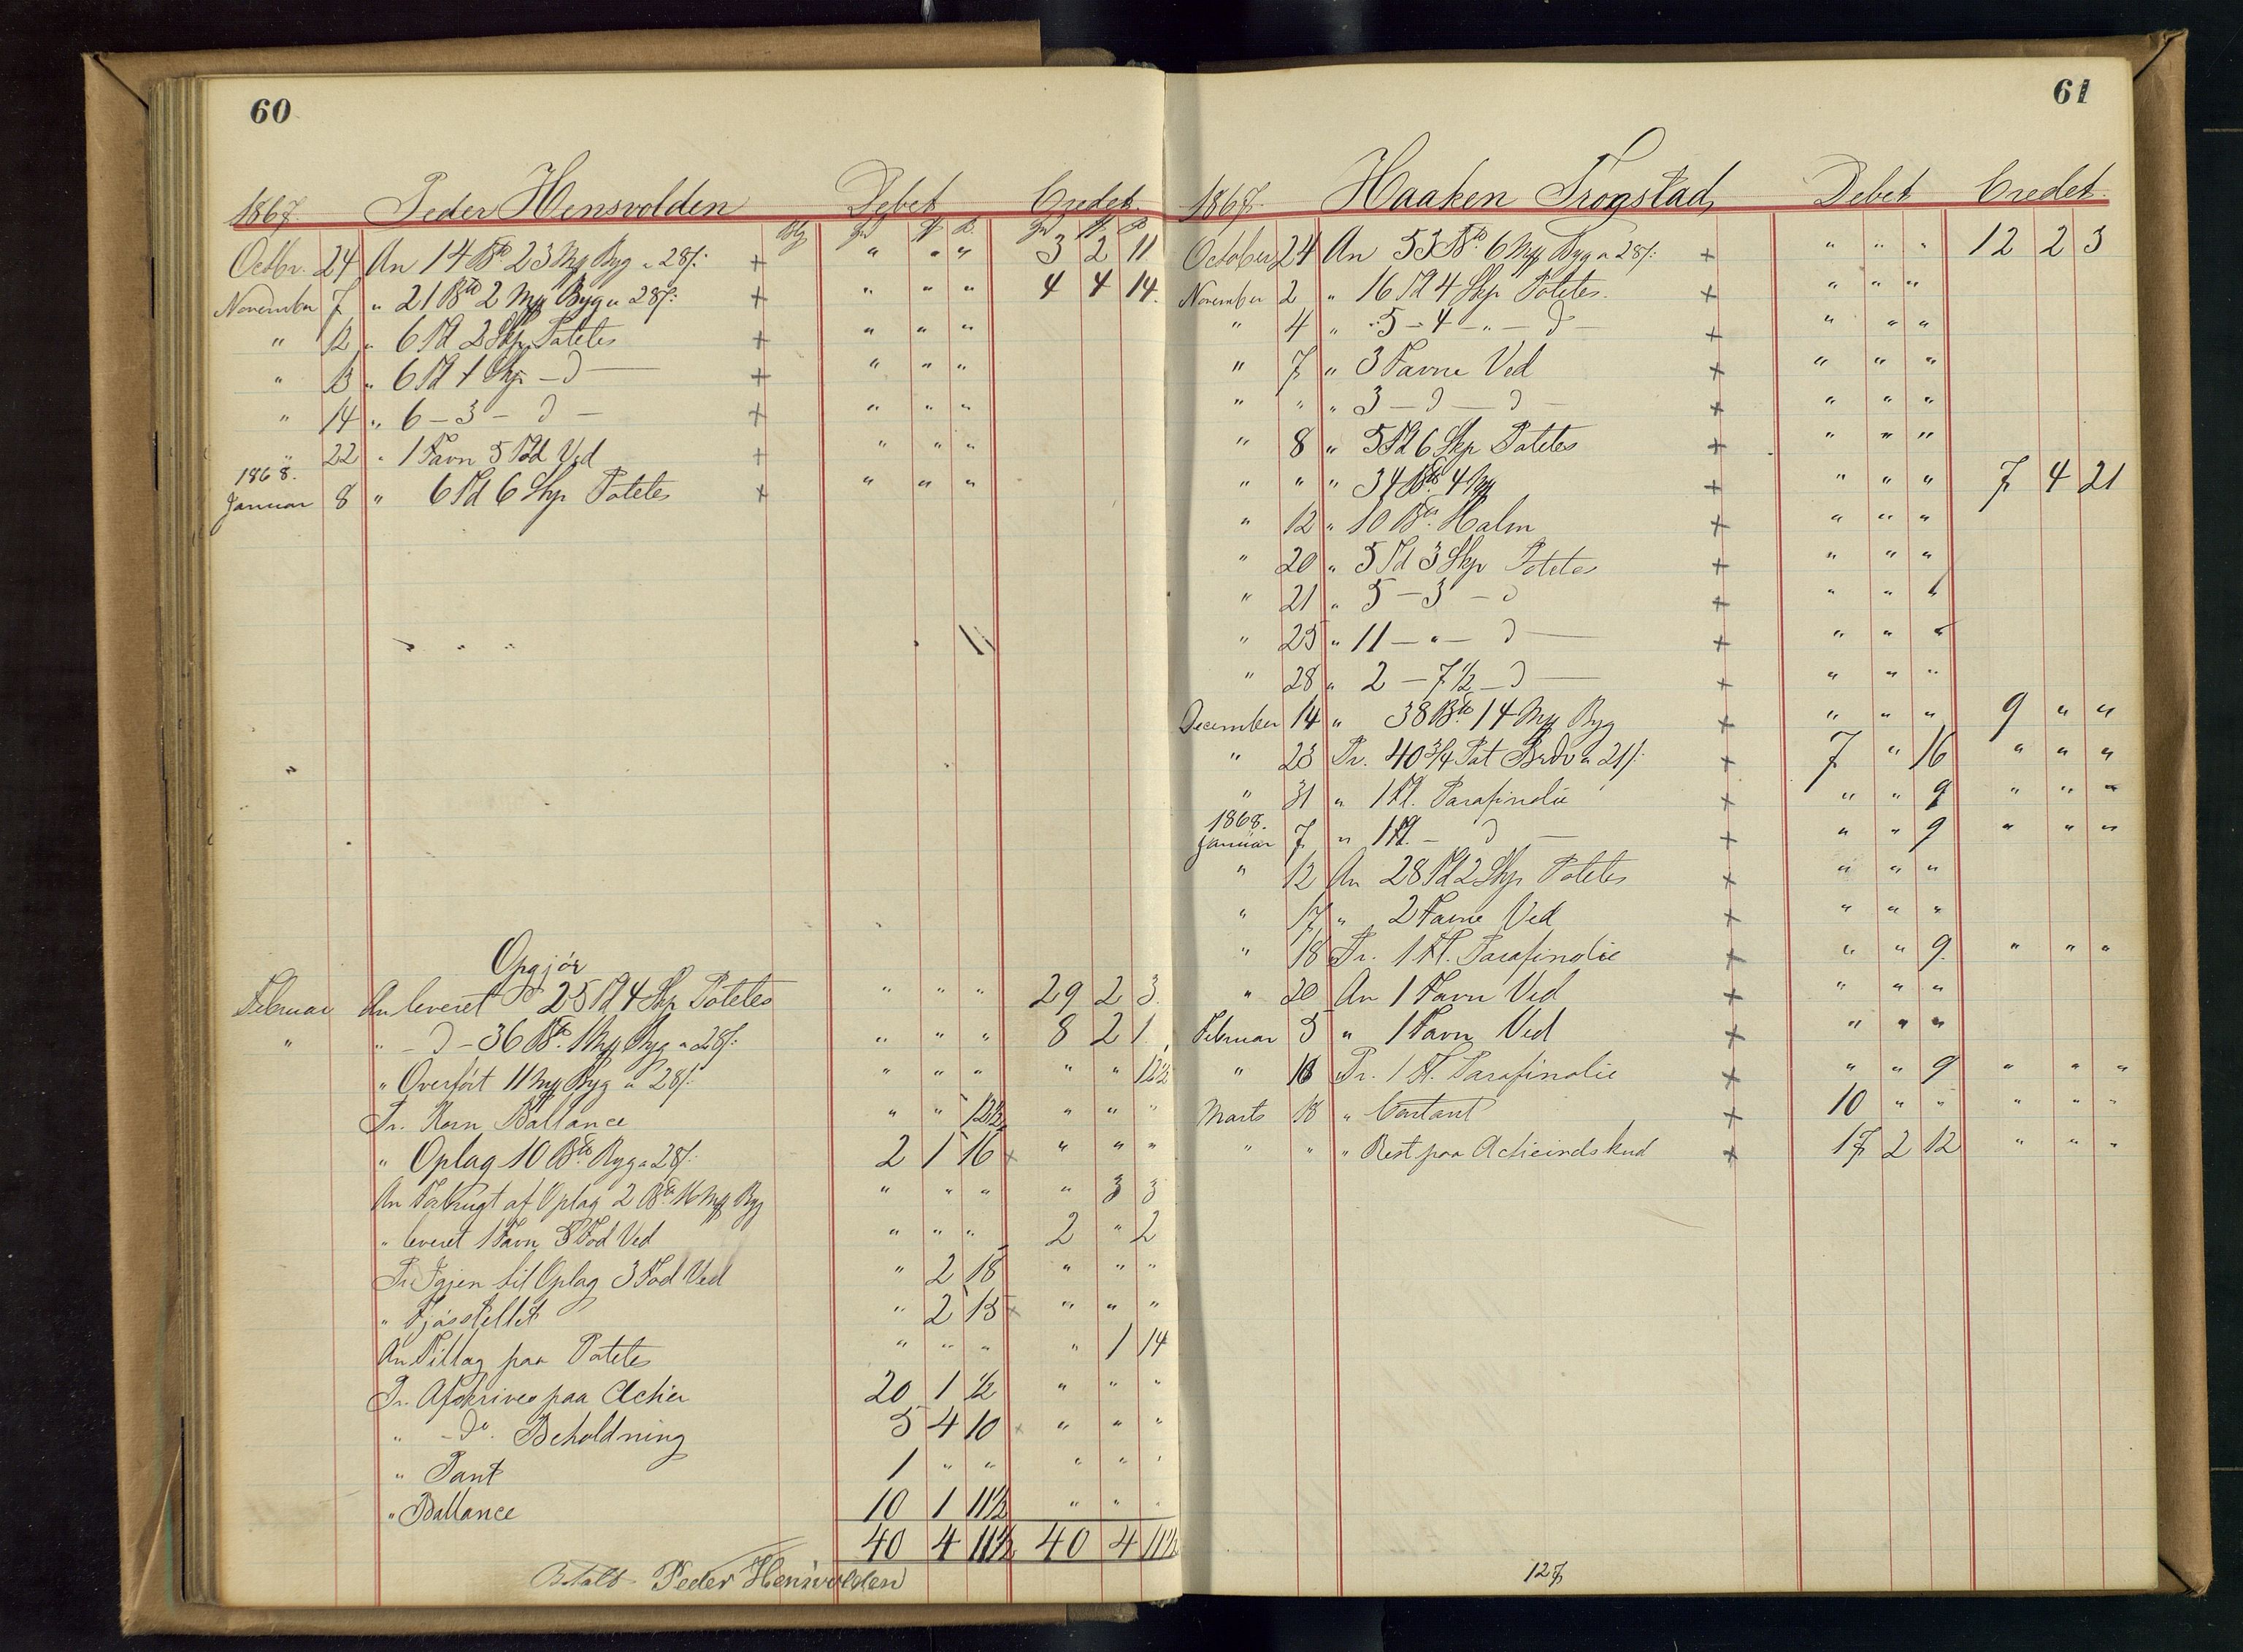 60
1867. Peder Hensvolden Debet Credet
Octbr. 24 An 14 B℔ 23 Mk Byg a 28/: + " " " 3 2 11
November 7 " 21 B℔ 2 Mk Byg a 28/: + " " " 4 4 14.
" 12 " 6 Td 2 Skp Potetes + " " "
" 13 " 6 Td 1 Skp - d - + " " "
" 14 " 6 - 3 - d - + " " "
" 22 " 1 Favn 5 Fod Ved + " " "
1868.
Januar 8 " 6 Td 6 Skp Potetes + " " "
Opgjör
Februar An leveret 25 Td 4 Skp Potetes " " " 29 2 3
" " - d - 36 B℔ 1 Mk Byg a 28/: " " " 8 2 1
" Overfört 11 Mk Byg a 28/: " " " " " 12½
Pr. Korn Ballance " " 12½ " " "
" Oplag 10 B℔ Byg a 28/: 2 1 16 + " " "
An Forbrugt af Oplag 2 B℔ 16 Mk Byg " " " " 3 3
" leveret 1 Favn 5 Fod Ved " " " 2 " 2
Pr. Igjen til Oplag 3 Fod Ved " 2 18 " " "
" Fjösstellet " 2 13 + " " "
An Tillag paa Potetes " " " " 1 14
Pr. Afskrives paa Actier 20 1 ½ " " "
" - do. Beholdning 5 4 10 + " " "
" Pant 1 " " " " "
" Ballance 10 1 11½ " " "
40 4 11½ 40 4 11½
Betalt Peder Hensvolden
61
1867. Haaken Trogstad, Debet Credet.
October 24 An 53 B℔ 6 Mk Byg a 28/: + " " " 12 2 3
November 2 " 16 Td 4 Skp Potetes. + " " "
" 4 " 5 - 4 - " - d - + " " "
" 7 " 3 Favne Ved + " " "
" " " 3 - d - d - + " " "
" 8 " 5 Td 6 Skp Potetes + " " "
" " " 34 B℔ 4 Mk + " " " 7 4 21
" 12 " 10 B℔ Halm + " " "
" 20 " 5 Td 3 Skp Potetes + " " "
" 21 " 5 - 3 - d + " " "
" 25 " 11 - " - d - + " " "
" 28 " 2 - 7½ - d - + " " "
December 14 " 38 B℔ 14 Mk Byg + " " " 9 " "
" 23 Pr. 40¾ Pot Brdv a 21/: + 7 " 16 " " "
" 31 " 1 Fl. Parafinolie + " " 9 " " "
1868.
Januar 7 " 1 Fl. - d - + " " 9 " " "
" 12 An 28 Td 2 Skp Potetes + " " "
" 17 " 2 Favne Ved + " " "
" 18 Pr. 1 Fl. Parafinolie + " " 9 " " "
" 20 An 1 Favn Ved + " " "
Februar 5 " 1 Favn Ved + " " "
" 18 Pr. 1 Fl. Parafinolie + " " 9 " " "
Marts 18 " Contant + 10 " " " " "
" " " Rest paa Actieindskud + 17 2 12 " " "
127